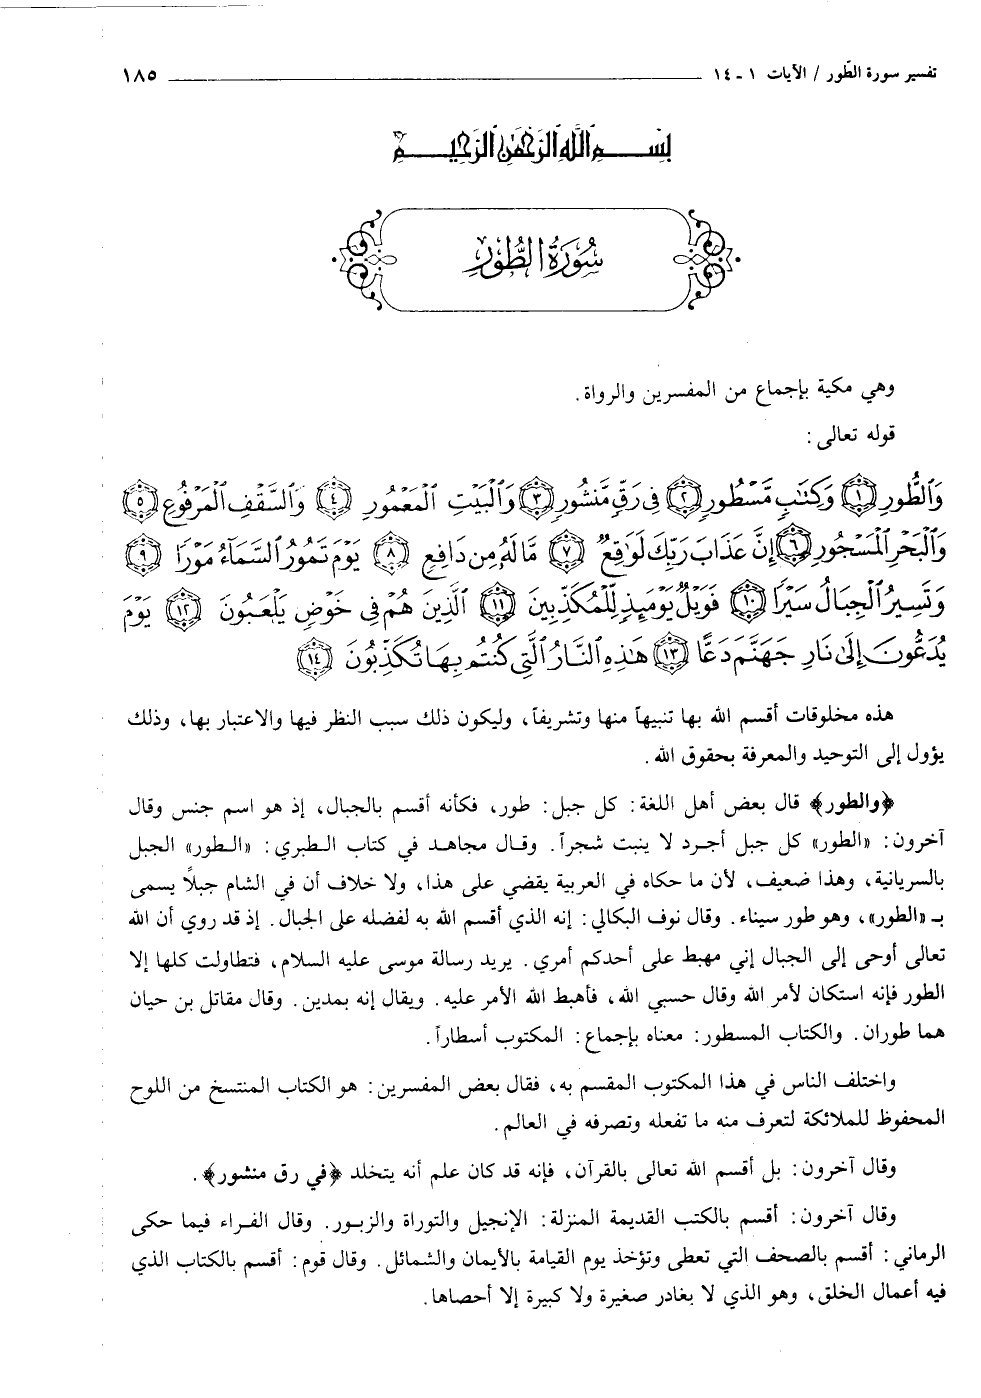 تفسير سورة الطّور / الآيات ١ ـ ١٤ ١٨٥
بِسْمِ ٱللَّهِ ٱلرَّحْمَٰنِ ٱلرَّحِيمِ
سُورَةُ الطُّورِ
وهي مكية بإجماع من المفسرين والرواة.
قوله تعالى:
وَالطُّورِ ١ وَكِتَٰبٍ مَّسْطُورٍ ٢ فِى رَقٍّ مَّنشُورٍ ٣ وَالْبَيْتِ الْمَعْمُورِ ٤ وَالسَّقْفِ الْمَرْفُوعِ ٥
وَالْبَحْرِ الْمَسْجُورِ ٦ إِنَّ عَذَابَ رَبِّكَ لَوَٰقِعٌ ٧ مَّا لَهُ مِن دَافِعٍ ٨ يَوْمَ تَمُورُ السَّمَآءُ مَوْرًا ٩
وَتَسِيرُ الْجِبَالُ سَيْرًا ١٠ فَوَيْلٌ يَوْمَئِذٍ لِّلْمُكَذِّبِينَ ١١ الَّذِينَ هُمْ فِى خَوْضٍ يَلْعَبُونَ ١٢ يَوْمَ
يُدَعُّونَ إِلَىٰ نَارِ جَهَنَّمَ دَعًّا ١٣ هَٰذِهِ النَّارُ الَّتِى كُنتُم بِهَا تُكَذِّبُونَ ١٤
هذه مخلوقات أقسم الله بها تنبيهاً منها وتشريفاً، وليكون ذلك سبب النظر فيها والاعتبار بها، وذلك
يؤول إلى التوحيد والمعرفة بحقوق الله.
﴿والطور﴾ قال بعض أهل اللغة: كل جبل: طور، فكأنه أقسم بالجبال، إذ هو اسم جنس وقال
آخرون: «الطور» كل جبل أجرد لا ينبت شجراً. وقال مجاهد في كتاب الطبري: «الطور» الجبل
بالسريانية، وهذا ضعيف، لأن ما حكاه في العربية يقضي على هذا، ولا خلاف أن في الشام جبلاً يسمى
بـ «الطور»، وهو طور سيناء. وقال نوف البكالي: إنه الذي أقسم الله به لفضله على الجبال. إذ قد روي أن الله
تعالى أوحى إلى الجبال إني مهبط على أحدكم أمري. يريد رسالة موسى عليه السلام، فتطاولت كلها إلا
الطور فإنه استكان لأمر الله وقال حسبي الله، فأهبط الله الأمر عليه. ويقال إنه بمدين. وقال مقاتل بن حيان
هما طوران. والكتاب المسطور: معناه بإجماع: المكتوب أسطاراً.
واختلف الناس في هذا المكتوب المقسم به، فقال بعض المفسرين: هو الكتاب المنتسخ من اللوح
المحفوظ للملائكة لتعرف منه ما تفعله وتصرفه في العالم.
وقال آخرون: بل أقسم الله تعالى بالقرآن، فإنه قد كان علم أنه يتخلد ﴿في رق منشور﴾.
وقال آخرون: أقسم بالكتب القديمة المنزلة: الإنجيل والتوراة والزبور. وقال الفراء فيما حكى
الرماني: أقسم بالصحف التي تعطى وتؤخذ يوم القيامة بالأيمان والشمائل. وقال قوم: أقسم بالكتاب الذي
فيه أعمال الخلق، وهو الذي لا يغادر صغيرة ولا كبيرة إلا أحصاها.